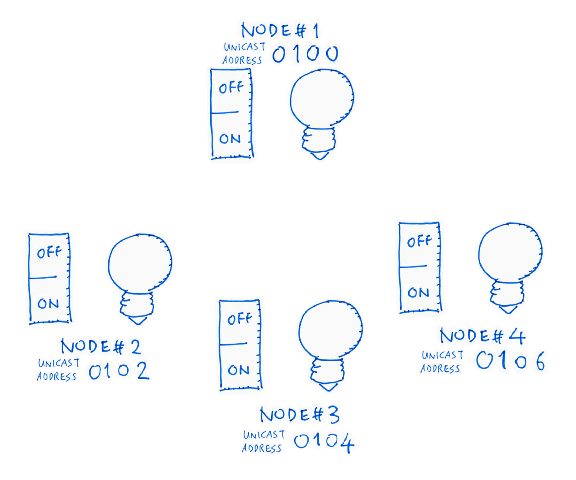 NODE#1
UNICAST ADDRESS 0100
OFF
ON
OFF
ON
NODE#2
UNICAST ADDRESS 0102
OFF
ON
NODE#3
UNICAST ADDRESS 0104
OFF
ON
NODE#4
UNICAST ADDRESS 0106